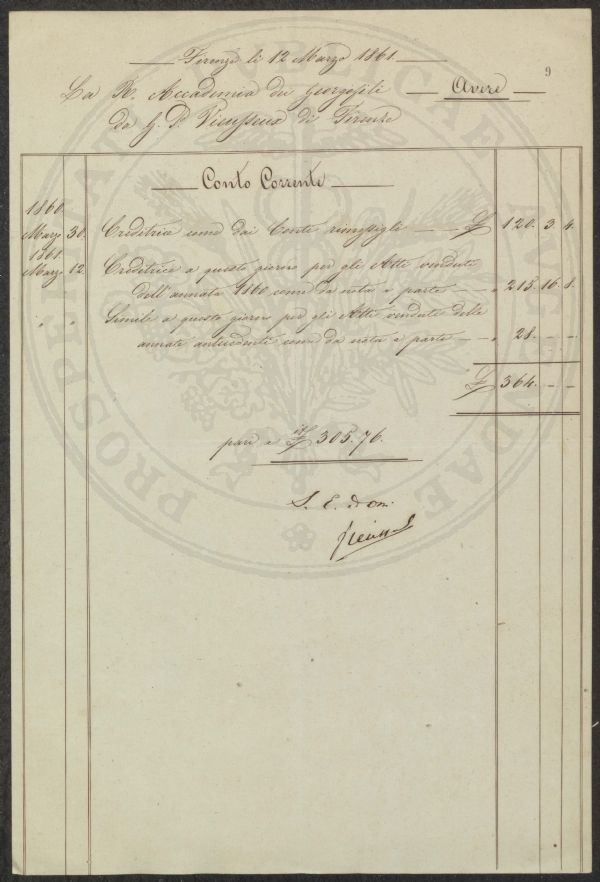 Firenze li 12 Marzo 1861.
9
La R. Accademia dei Georgofili — Avere
da G. P. Vieusseux di Firenze
Conto Corrente
1860.
Marzo 30. Creditrice come dai Conti rimessigli £ 120. 3. 4.
1861.
Marzo 12. Creditrice a questo giorno per gli Atti venduti
dell'annata 1860 come da nota a parte — „ 215. 16. 8.
„ „ Simile a questo giorno per gli Atti venduti delle
annate antecedenti come da nota a parte — „ 28. - -
£ 364. - -
pari a it£ 305. 76.
S. E. ed om.
Vieusseux
PROSPERITATI PUBLICAE AUGENDAE